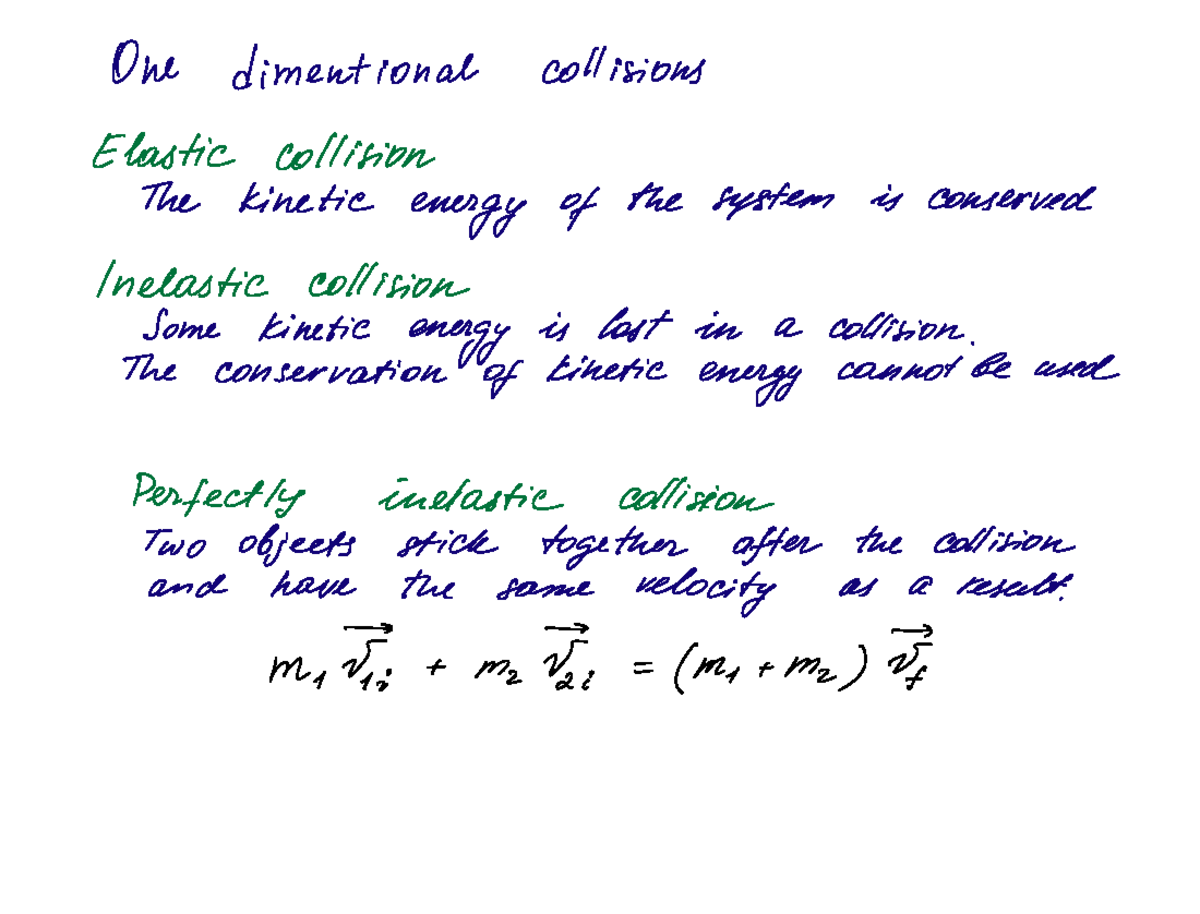 One dimentional collisions
Elastic collision
The kinetic energy of the system is conserved
Inelastic collision
Some kinetic energy is lost in a collision.
The conservation of kinetic energy cannot be used
Perfectly inelastic collision
Two objects stick together after the collision
and have the same velocity as a result.
m₁ v⃗₁ᵢ + m₂ v⃗₂ᵢ = (m₁ + m₂) v⃗_f